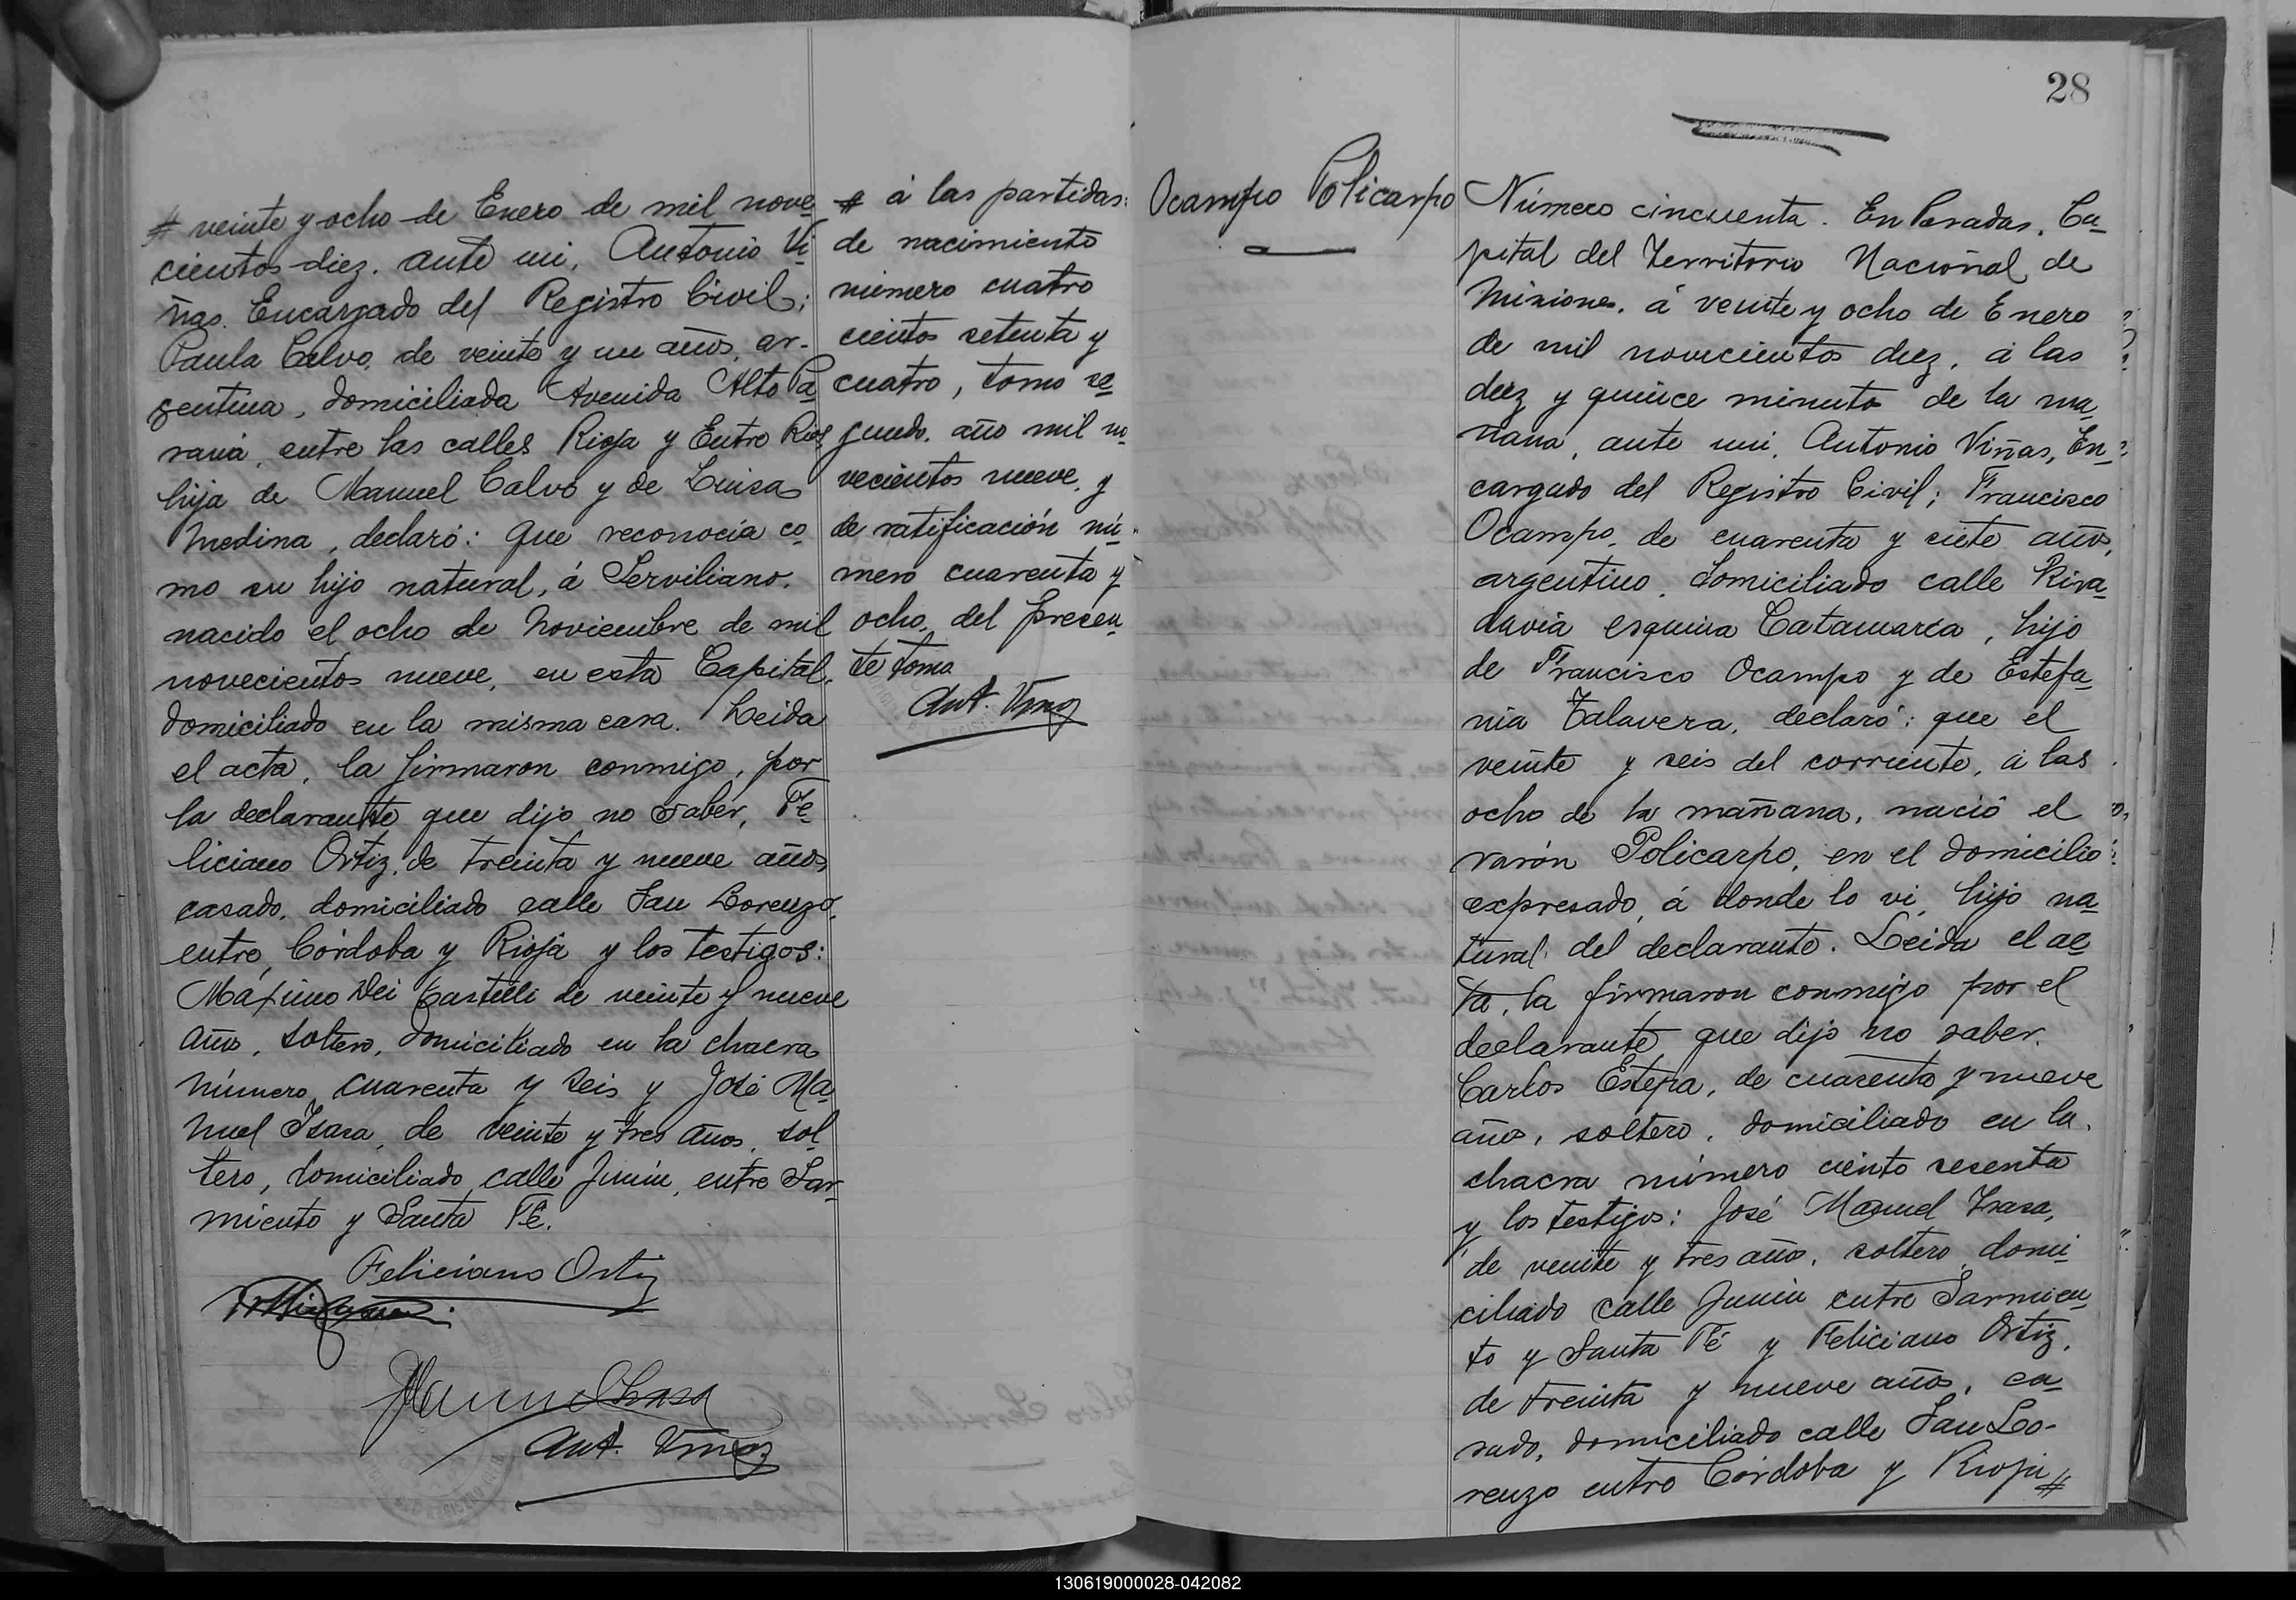 # veinte y ocho de Enero de mil nove
cientos diez. ante mi, Antonio Vi
ñas. Encargado del Registro Civil;
Paula Calvo, de veinte y un años, ar-
gentina, domiciliada Avenida Alto Pa
raná, entre las calles Rioja y Entre Rios
hija de Manuel Calvo y de Luisa
Medina, declaró: que reconocia co
mo su hijo natural, á Serviliano.
nacido el ocho de Noviembre de mil
novecientos nueve, en esta Capital,
domiciliado en la misma casa. Leida
el acta, la firmaron conmigo, por
la declarante que dijo no saber, Fe
liciano Ortiz, de treinta y nueve años
casado, domiciliado calle San Lorenzo,
entre Córdoba y Rioja y los testigos:
Máximo Dei Castelli de veinte y nueve
años, soltero, domiciliado en la chacra
número cuarenta y seis y José Ma
nuel Isasa, de veinte y tres años, sol
tero, domiciliado calle Junín, entre Sar
miento y Santa Fé.
Feliciano Ortiz
JManuel Isasa
Ant. Viñas
# á las partidas:
de nacimiento
número cuatro
cientos setenta y
cuatro, tomo se
gundo, año mil no
vecientos nueve, y
de ratificación nú
mero cuarenta y
ocho, del presen
te tomo
Ant. Viñas
28
Ocampo Policarpo
Número cincuenta. En Posadas, Ca
pital del Territorio Nacional de
Misiones, á veinte y ocho de Enero
de mil novecientos diez, á las
diez y quince minutos de la ma
ñana, ante mi, Antonio Viñas, En
cargado del Registro Civil; Francisco
Ocampo, de cuarenta y siete años,
argentino, domiciliado calle Riva
davia esquina Catamarca, hijo
de Francisco Ocampo y de Estefa
nia Talavera, declaró: que el
veinte y seis del corriente, á las
ocho de la mañana, nació el
varón Policarpo, en el domicilio
expresado, á donde lo vi, hijo na
tural del declarante. Leida el ac
ta, la firmaron conmigo por el
declarante que dijo no saber.
Carlos Estepa, de cuarenta y nueve
años, soltero, domiciliado en la
chacra número ciento sesenta
y los testigos: José Manuel Isasa,
de veinte y tres años, soltero, domi
ciliado calle Junín entre Sarmien
to y Santa Fé y Feliciano Ortiz,
de treinta y nueve años, ca
sado, domiciliado calle San Lo-
renzo entre Córdoba y Rioja #
130619000028-042082